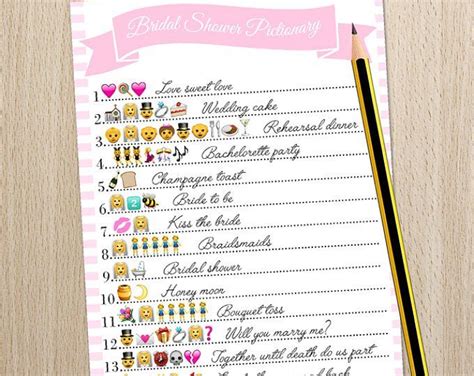 Bridal Shower Pictionary
1. Love sweet love
2. Wedding cake
3. Rehearsal dinner
4. Bachelorette party
5. Champagne toast
6. Bride to be
7. Kiss the bride
8. Braidsmaids
9. Bridal shower
10. Honey moon
11. Bouquet toss
12. Will you marry me?
13. Together until death do us part